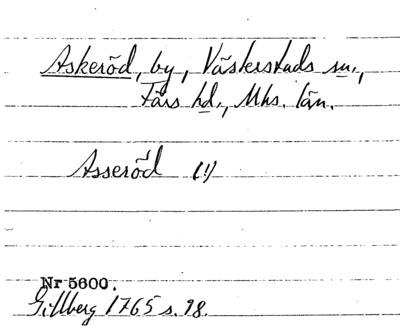 Askeröd, by, Västerstads sn.,
Färs hd., Mhs. län.
Asseröd (!)
Nr 5600.
Gillberg 1765 s. 98.